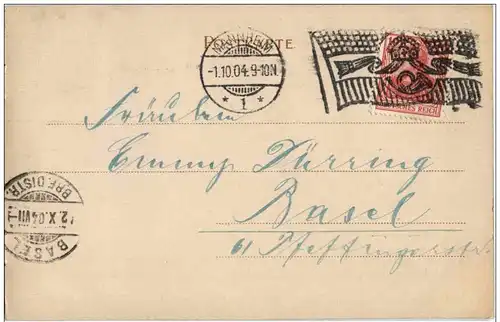 POSTKARTE
MANNHEIM
-1.10.04.9-10N
* 1 *
REICH
Fräulein
Emmy Dürring
Basel
61 Pfeffingerstr.
BRFDISTR.
2.X.04.VII
BASEL